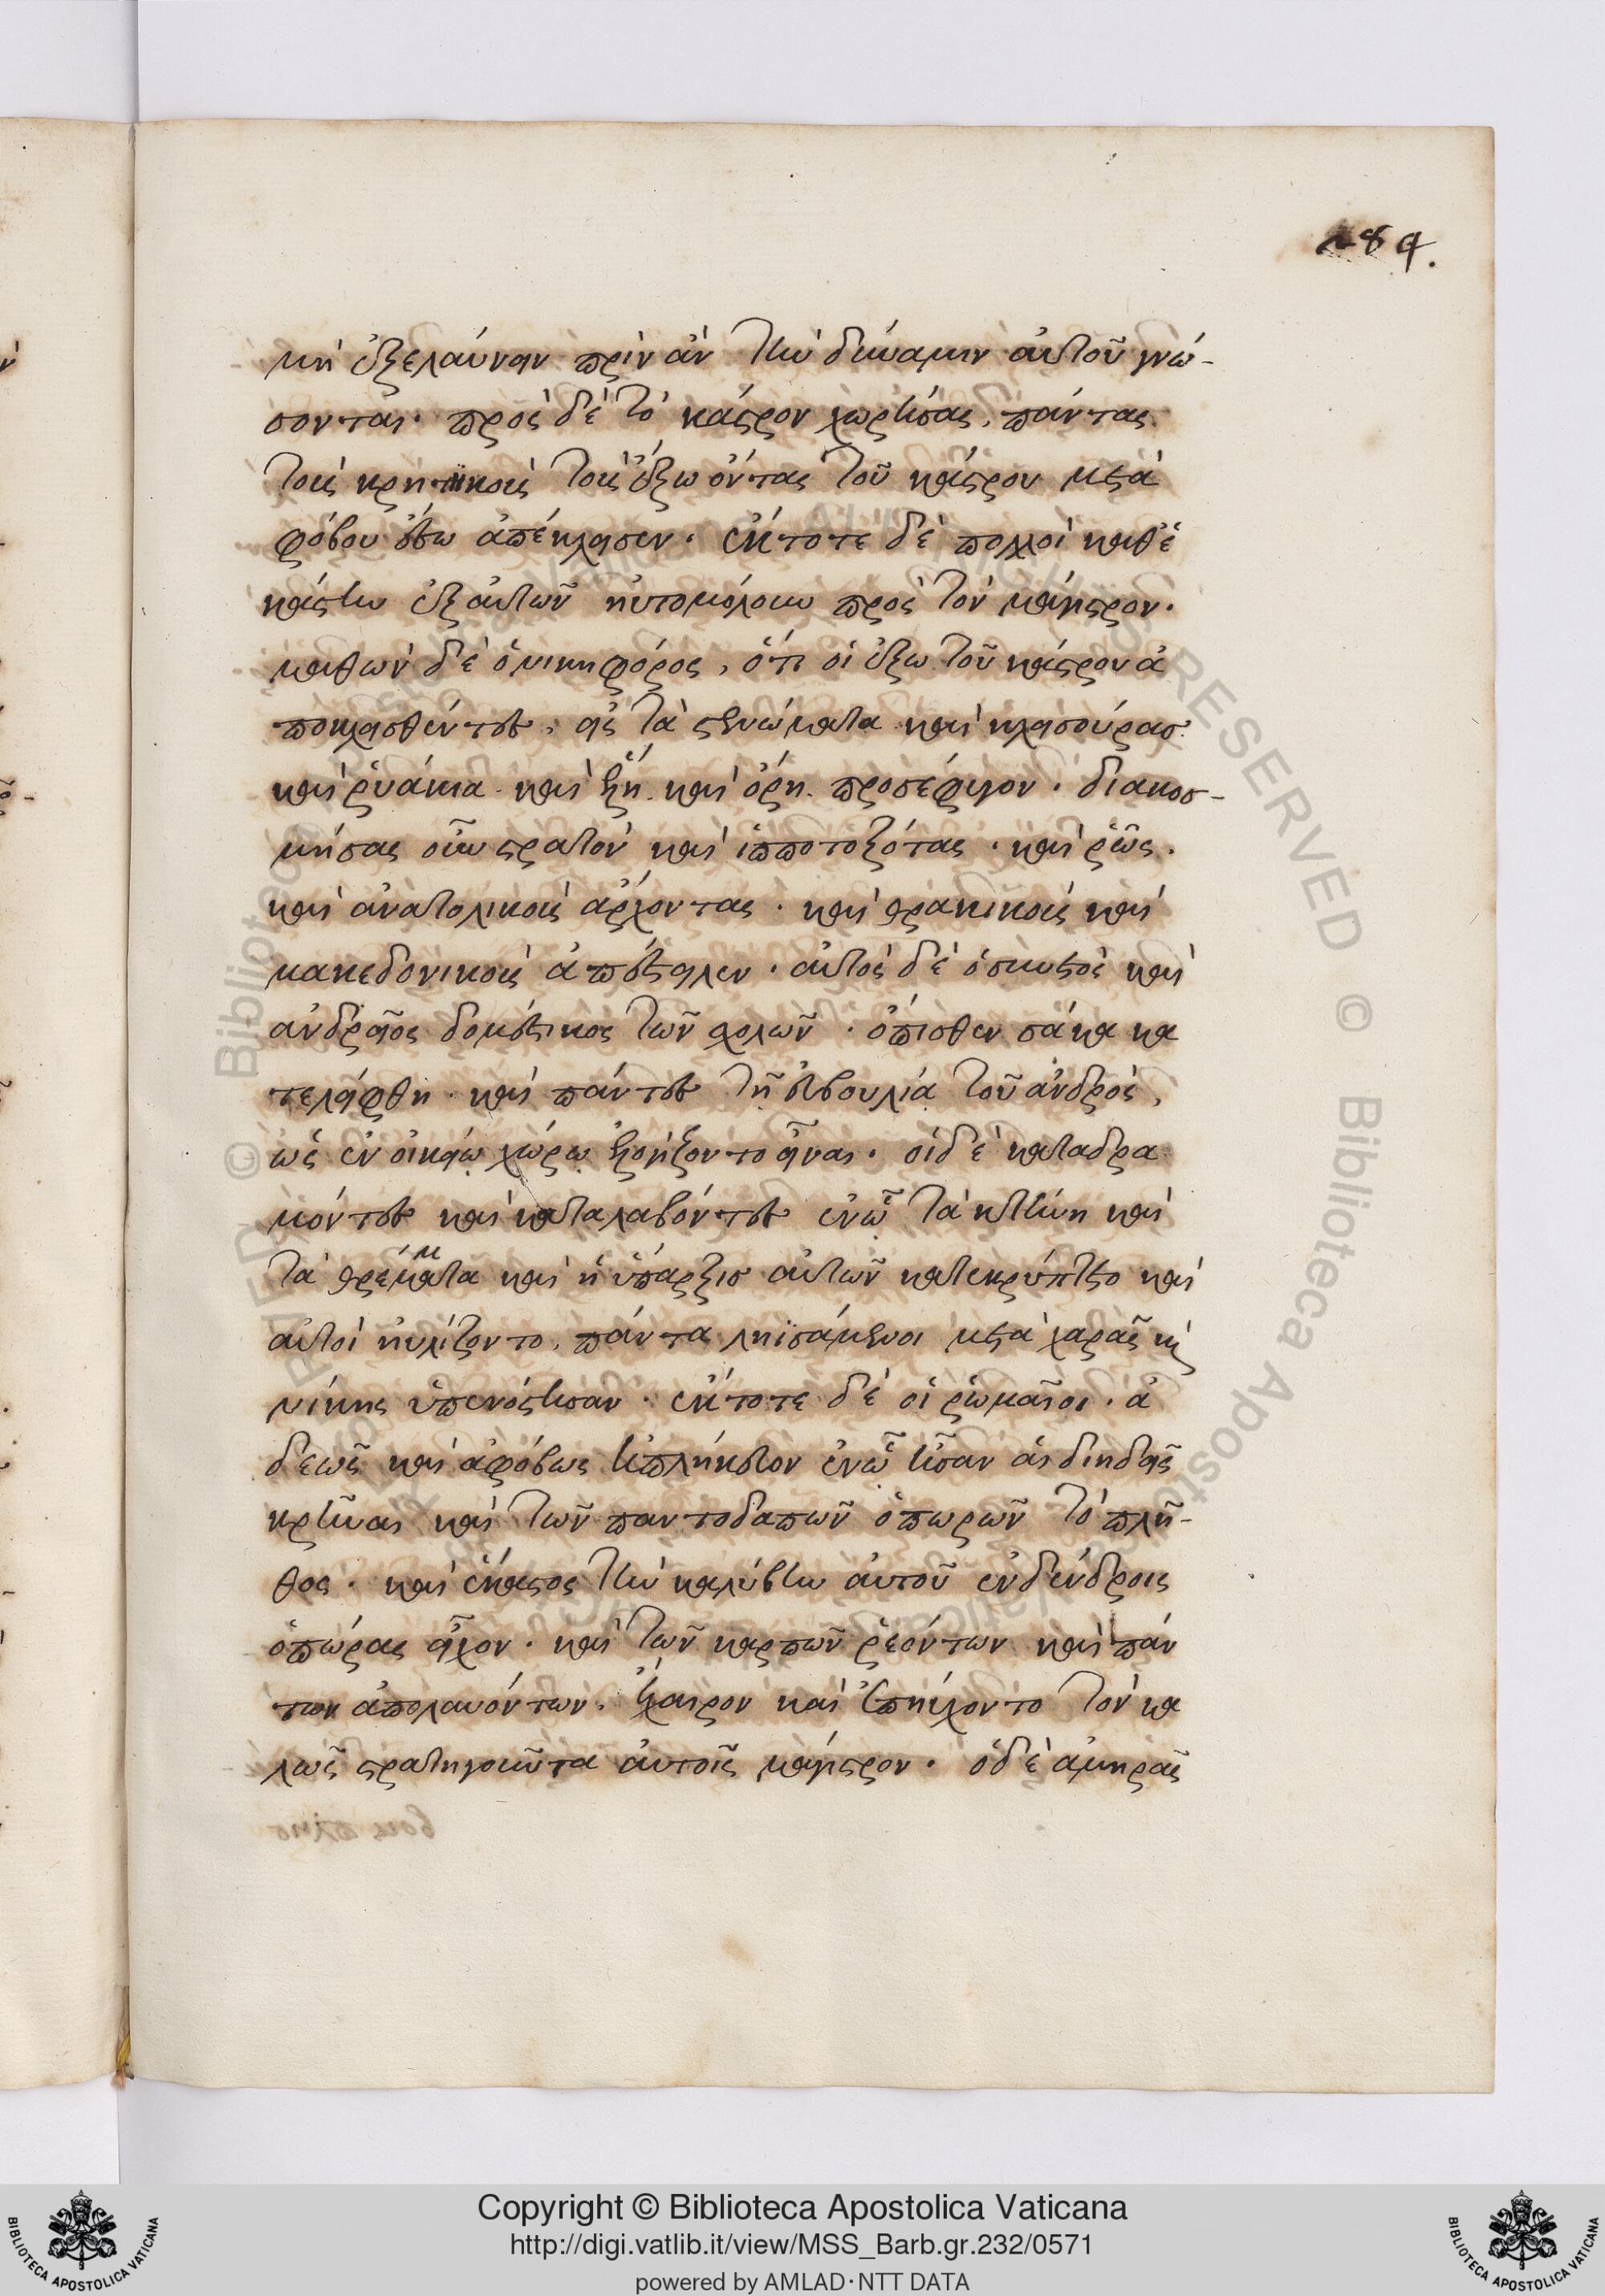 284.
μὴ ἐξελαύνειν πρὶν ἂν τὴν δύναμιν αὐτοῦ γνώ-
σονται. πρὸς δὲ τὸ κάστρον χωρήσας, πάντας
τοὺς κρητικοὺς τοὺς ἔξω ὄντας τοῦ κάστρου μετὰ
φόβου ἔσω ἀπέκλεισεν. ἔκτοτε δὲ πολλοὶ καθ' ἑ
κάστην ἐξ αὐτῶν ηὐτομόλουν πρὸς τὸν μάγιστρον.
μαθὼν δὲ ὁ νικηφόρος, ὅτι οἱ ἔξω τοῦ κάστρου ἀ
ποκλεισθέντες, εἰς τὰ στενώματα καὶ κλεισούρας
καὶ ῥυάκια καὶ καὶ ὄρη προσέφυγον. διακοσ-
μήσας οὖν στρατὸν καὶ ἱπποτοξότας. καὶ ῥῶς.
καὶ ἀνατολικοὺς ἄρχοντας. καὶ θρακικοὺς καὶ
μακεδονικοὺς ἀπέστειλεν. αὐτὸς δὲ ὁ σκυτὸς καὶ
ἀνδρεῖος δομέστικος τῶν σχολῶν. ὄπισθεν σάκα κα
τελείφθη. καὶ πάντες τῇ εὐβουλίᾳ τοῦ ἀνδρὸς,
ὡς ἐν οἰκείῳ χώρῳ ἐνόμιζον τὸ εἶναι. οἱ δὲ καταδρα
μόντες καὶ καταλαβόντες ἐν ᾧ τὰ κτήνη καὶ
τὰ θρέμματα καὶ ἡ ὕπαρξις αὐτῶν κατεκρύπτετο καὶ
αὐτοὶ ηὐλίζοντο, πάντα ληϊσάμενοι μετὰ χαρᾶς καὶ
νίκης ὑπενόστησαν. ἔκτοτε δὲ οἱ ῥωμαῖοι. ἀ
δεῶς καὶ ἀφόβως ἠπλήκευον ἐν ᾧ ἦσαν αἱ διηδεῖς
κρῆναι καὶ τῶν παντοδαπῶν ὀπωρῶν τὸ πλῆ-
θος. καὶ ἕκαστος τὴν καλύβην αὐτοῦ ἐν δένδροις
ὀπώρας εἶχον. καὶ τῶν καρπῶν ῥεόντων καὶ πάν
των ἀπολαυόντων. ἔχαιρον καὶ ἐπηύχοντο τὸν κα
λῶς στρατηγοῦντα αὐτοῖς μάγιστρον. ὁ δὲ ἀμηρᾶς
Copyright © Biblioteca Apostolica Vaticana
http://digi.vatlib.it/view/MSS_Barb.gr.232/0571
powered by AMLAD·NTT DATA
BIBLIOTECA APOSTOLICA VATICANA
BIBLIOTECA APOSTOLICA VATICANA